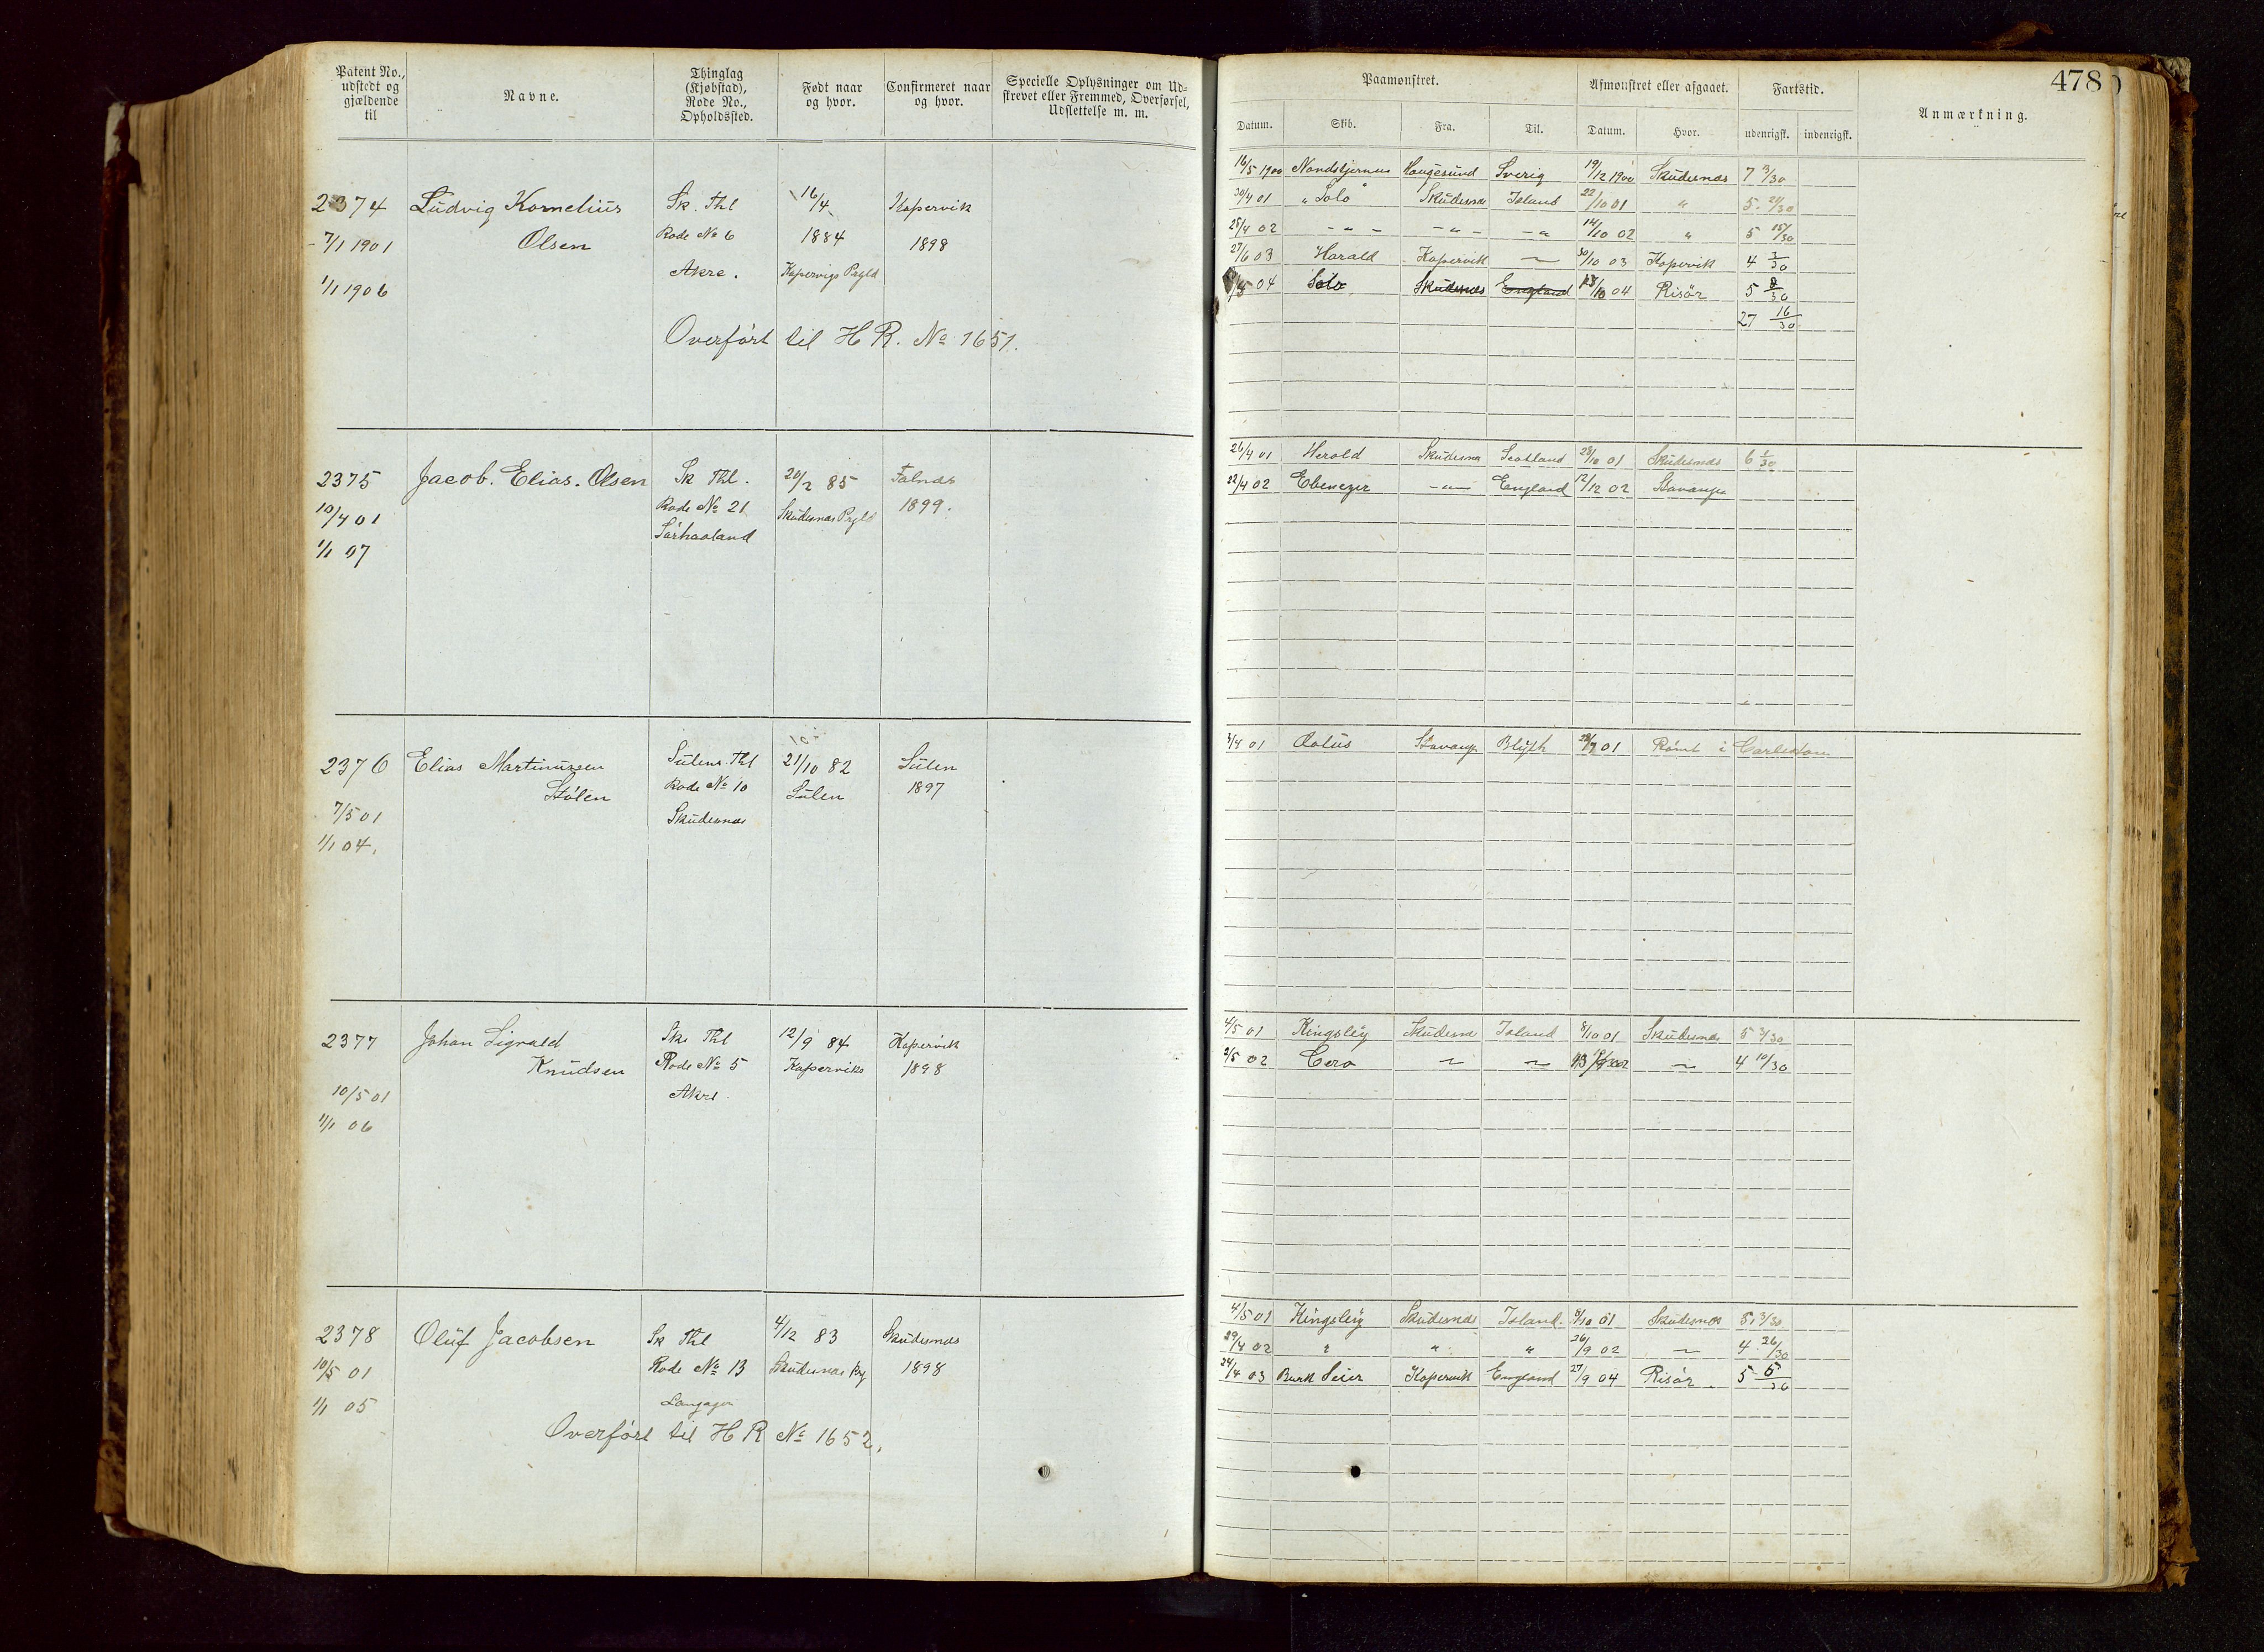 Patent No., udstedt og gjældende til
Navne.
Thinglag (Kjøbstad), Rode No., Opholdssted.
Født naar og hvor.
Confirmeret naar og hvor.
Specielle Oplysninger om Udskrevet eller Fremmed, Overførsel, Udslettelse m. m.
2374 Ludvig Kornelius Sk. Thl 16/4 Kopervik
7/1 1901 Olsen Rode No 6 1884 1898
1/1 1906 Akre. Kopervigs Prgld
Overført til H R. No 1651.
2375 Jacob. Elias. Olsen Sk Thl. 20/2 85 Falnæs
10/4 01 Rode No 21 Skudesnæs Prgld 1899.
1/1 07 Sørhaaland
2376 Elias Martinussen Sulens Thl 21/10 82 Sulen
Stølen Rode No 10 Sulen 1897
7/5 01 Skudesnæs
1/1 04.
2377 Johan Sigvald Sk. Thl 12/9 84 Kopervik
Knudsen Rode No 5 Koperviks 1898
10/5 01 Akre.
1/1 06
2378 Oluf Jacobsen Sk Thl 4/12 83 Skudesnæs
10/5 01 Rode No 13 Skudesnæs Prg 1898
1/1 05
Overført til H R No 1652.
478
Paamønstret.
Afmønstret eller afgaaet.
Fartstid.
Anmærkning.
Datum. Skib. Fra. Til. Datum. Hvor. udenrigsk. indenrigsk.
16/5 1900 Haugesund Sverig 19/12 1900 Skudesnæs 7 3/30
30/4 01 "Solo" Skudesnæs Island 22/10 01 " 5. 21/30
28/4 02 - " - - " - - " 14/10 02 " 5 15/30
27/6 03 Harald Kopervik — 30/10 03 Kopervik 4 3/30
04 Solo Skudesnæs England 13/10 04 Risör 5
27 16/30
26/4 01 Herold Skudesnæs Scotland 28/10 01 Skudesnæs 6 1/30
22/4 02 Ebenezer - " - England 12/12 02 Stavanger
3/4 01 Stavanger Blyth 01 Rømt i
4/5 01 Kingsley Skudesnæs Island 8/10 01 Skudesnæs 5 3/30
2/5 02 Cero — — — 4 10/30
4/5 01 Kingsley Skudesnæs Island. 8/10 01 Skudesnæs 5. 3/30
29/4 02 " " " 26/9 02 — 4 26/30
24/4 03 Bark Seier Kopervik England 27/9 04 Risör. 5 5/30